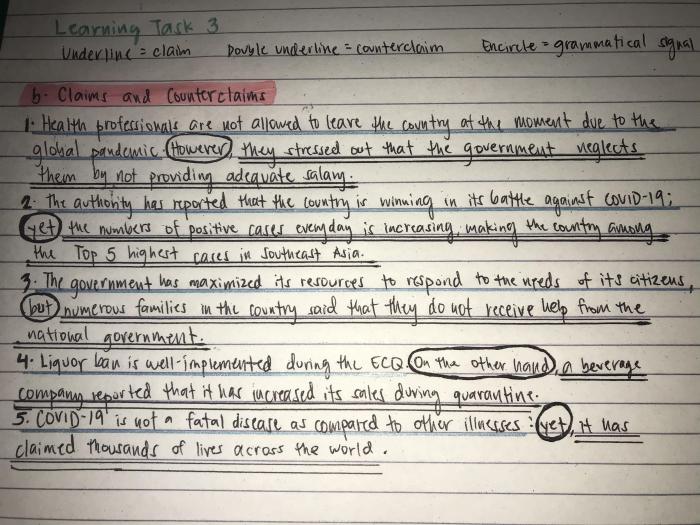 Learning Task 3
Underline = claim Double underline = counterclaim Encircle = grammatical signal
b. Claims and Counterclaims
1. Health professionals are not allowed to leave the country at the moment due to the
global pandemic. However, they stressed out that the government neglects
them by not providing adequate salary.
2. The authority has reported that the country is winning in its battle against COVID-19;
yet the numbers of positive cases everyday is increasing, making the country among
the Top 5 highest cases in Southeast Asia.
3. The government has maximized its resources to respond to the needs of its citizens,
but numerous families in the country said that they do not receive help from the
national government.
4. Liquor ban is well-implemented during the ECQ. On the other hand, a beverage
company reported that it has increased its sales during quarantine.
5. COVID-19 is not a fatal disease as compared to other illnesses; yet, it has
claimed thousands of lives across the world.